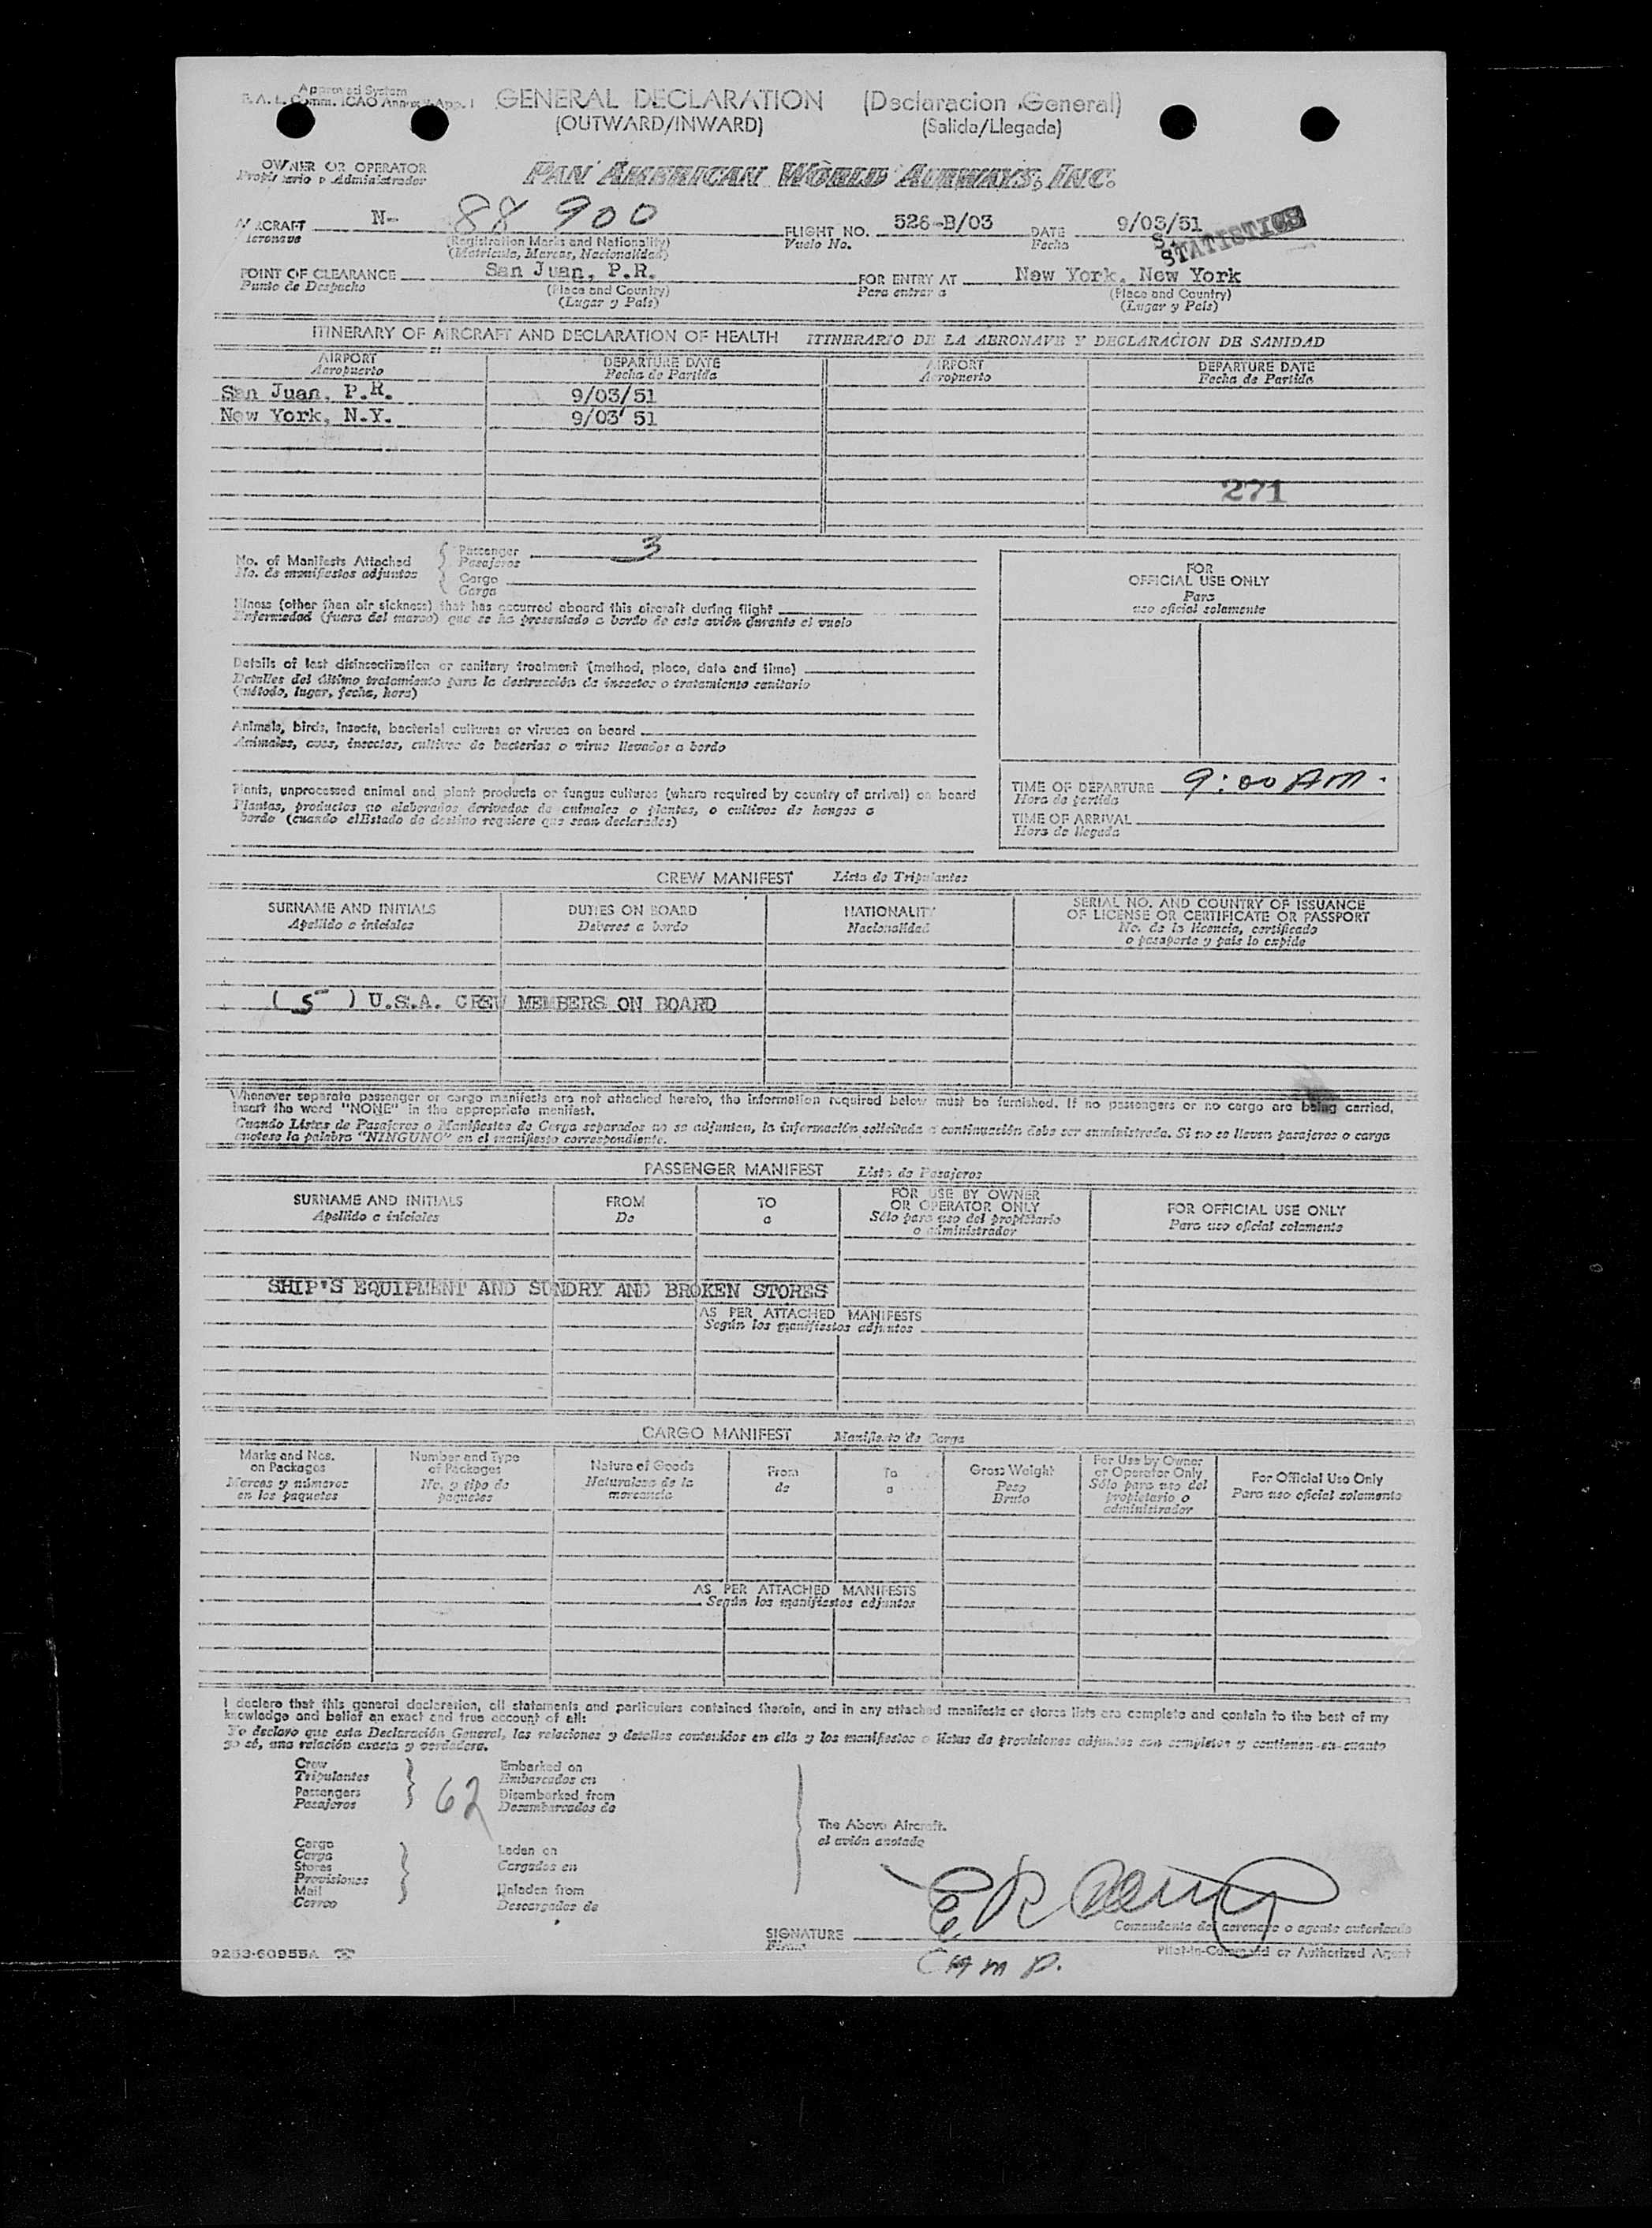 Approved System
F. A. L. Comm. ICAO Annex 9 App. 1
GENERAL DECLARATION (Declaracion General)
(OUTWARD/INWARD) (Salida/Llegada)
OWNER OR OPERATOR
Propietario o Administrador
PAN AMERICAN WORLD AIRWAYS, INC.
AIRCRAFT N- 88900 FLIGHT NO. 526-B/03 DATE 9/03/51
Aeronave (Registration Marks and Nationality) Vuelo No. Fecha
(Matricula, Marcas, Nacionalidad)
STATISTICS
POINT OF CLEARANCE San Juan, P.R. FOR ENTRY AT New York, New York
Punto de Despacho (Place and Country) Para entrar a (Place and Country)
(Lugar y País) (Lugar y País)
ITINERARY OF AIRCRAFT AND DECLARATION OF HEALTH ITINERARIO DE LA AERONAVE Y DECLARACION DE SANIDAD
AIRPORT DEPARTURE DATE AIRPORT DEPARTURE DATE
Aeropuerto Fecha de Partida Aeropuerto Fecha de Partida
San Juan, P.R. 9/03/51
New York, N.Y. 9/03/51
271
No. of Manifests Attached
No. de manifiestos adjuntos
Passenger 3
Pasajeros
Cargo
Carga
Illness (other than air sickness) that has occurred aboard this aircraft during flight
Enfermedad (fuera del mareo) que se ha presentado a bordo de este avión durante el vuelo
Details of last disinsectization or sanitary treatment (method, place, date and time)
Detalles del último tratamiento para la destrucción de insectos o tratamiento sanitario
(método, lugar, fecha, hora)
Animals, birds, insects, bacterial cultures or viruses on board
Animales, aves, insectos, cultivos de bacterias o virus llevados a bordo
Plants, unprocessed animal and plant products or fungus cultures (where required by country of arrival) on board
Plantas, productos no elaborados derivados de animales o plantas, o cultivos de hongos a
bordo (cuando elEstado de destino requiere que sean declarados)
FOR
OFFICIAL USE ONLY
Para
uso oficial solamente
TIME OF DEPARTURE 9:00 AM.
Hora de partida
TIME OF ARRIVAL
Hora de llegada
CREW MANIFEST Lista de Tripulantes
SURNAME AND INITIALS DUTIES ON BOARD NATIONALITY SERIAL NO. AND COUNTRY OF ISSUANCE
OF LICENSE OR CERTIFICATE OR PASSPORT
Apellido e iniciales Deberes a bordo Nacionalidad No. de la licencia, certificado
o pasaporte y país lo expide
( 5 ) U.S.A. CREW MEMBERS ON BOARD
Whenever separate passenger or cargo manifests are not attached hereto, the information required below must be furnished. If no passengers or no cargo are being carried,
insert the word "NONE" in the appropriate manifest.
Cuando Listas de Pasajeros o Manifiestos de Carga separados no se adjunten, la información solicitada a continuación debe ser suministrada. Si no se llevan pasajeros o carga
anotese la palabra "NINGUNO" en el manifiesto correspondiente.
PASSENGER MANIFEST Lista de Pasajeros
SURNAME AND INITIALS FROM TO FOR USE BY OWNER
OR OPERATOR ONLY FOR OFFICIAL USE ONLY
Apellido e iniciales De a Sólo para uso del propietario
o administrador Para uso oficial solamente
SHIP'S EQUIPMENT AND SUNDRY AND BROKEN STORES
AS PER ATTACHED MANIFESTS
Según los manifiestos adjuntos
CARGO MANIFEST Manifiesto de Carga
Marks and Nos.
on Packages
Marcas y números
en los paquetes
Number and Type
of Packages
No. y tipo de
paquetes
Nature of Goods
Naturaleza de la
mercancía
From
de
To
a
Gross Weight
Peso
Bruto
For Use by Owner
or Operator Only
Sólo para uso del
propietario o
administrador
For Official Use Only
Para uso oficial solamente
AS PER ATTACHED MANIFESTS
Según los manifiestos adjuntos
I declare that this general declaration, all statements and particulars contained therein, and in any attached manifests or stores lists are complete and contain to the best of my
knowledge and belief an exact and true account of all:
Yo declaro que esta Declaración General, las relaciones y detalles contenidos en ella y los manifiestos o listas de provisiones adjuntas son completos y contienen en cuanto
yo sé, una relación exacta y verdadera.
Crew
Tripulantes
Passengers
Pasajeros
62
Embarked on
Embarcados en
Disembarked from
Desembarcados de
Cargo
Carga
Stores
Provisiones
Mail
Correo
Laden on
Cargados en
Unladen from
Descargados de
The Above Aircraft.
el avión anotado
SIGNATURE
Firma
Comandante del aeronave o agente autorizado
Pilot-in-Command or Authorized Agent
9263-60955A